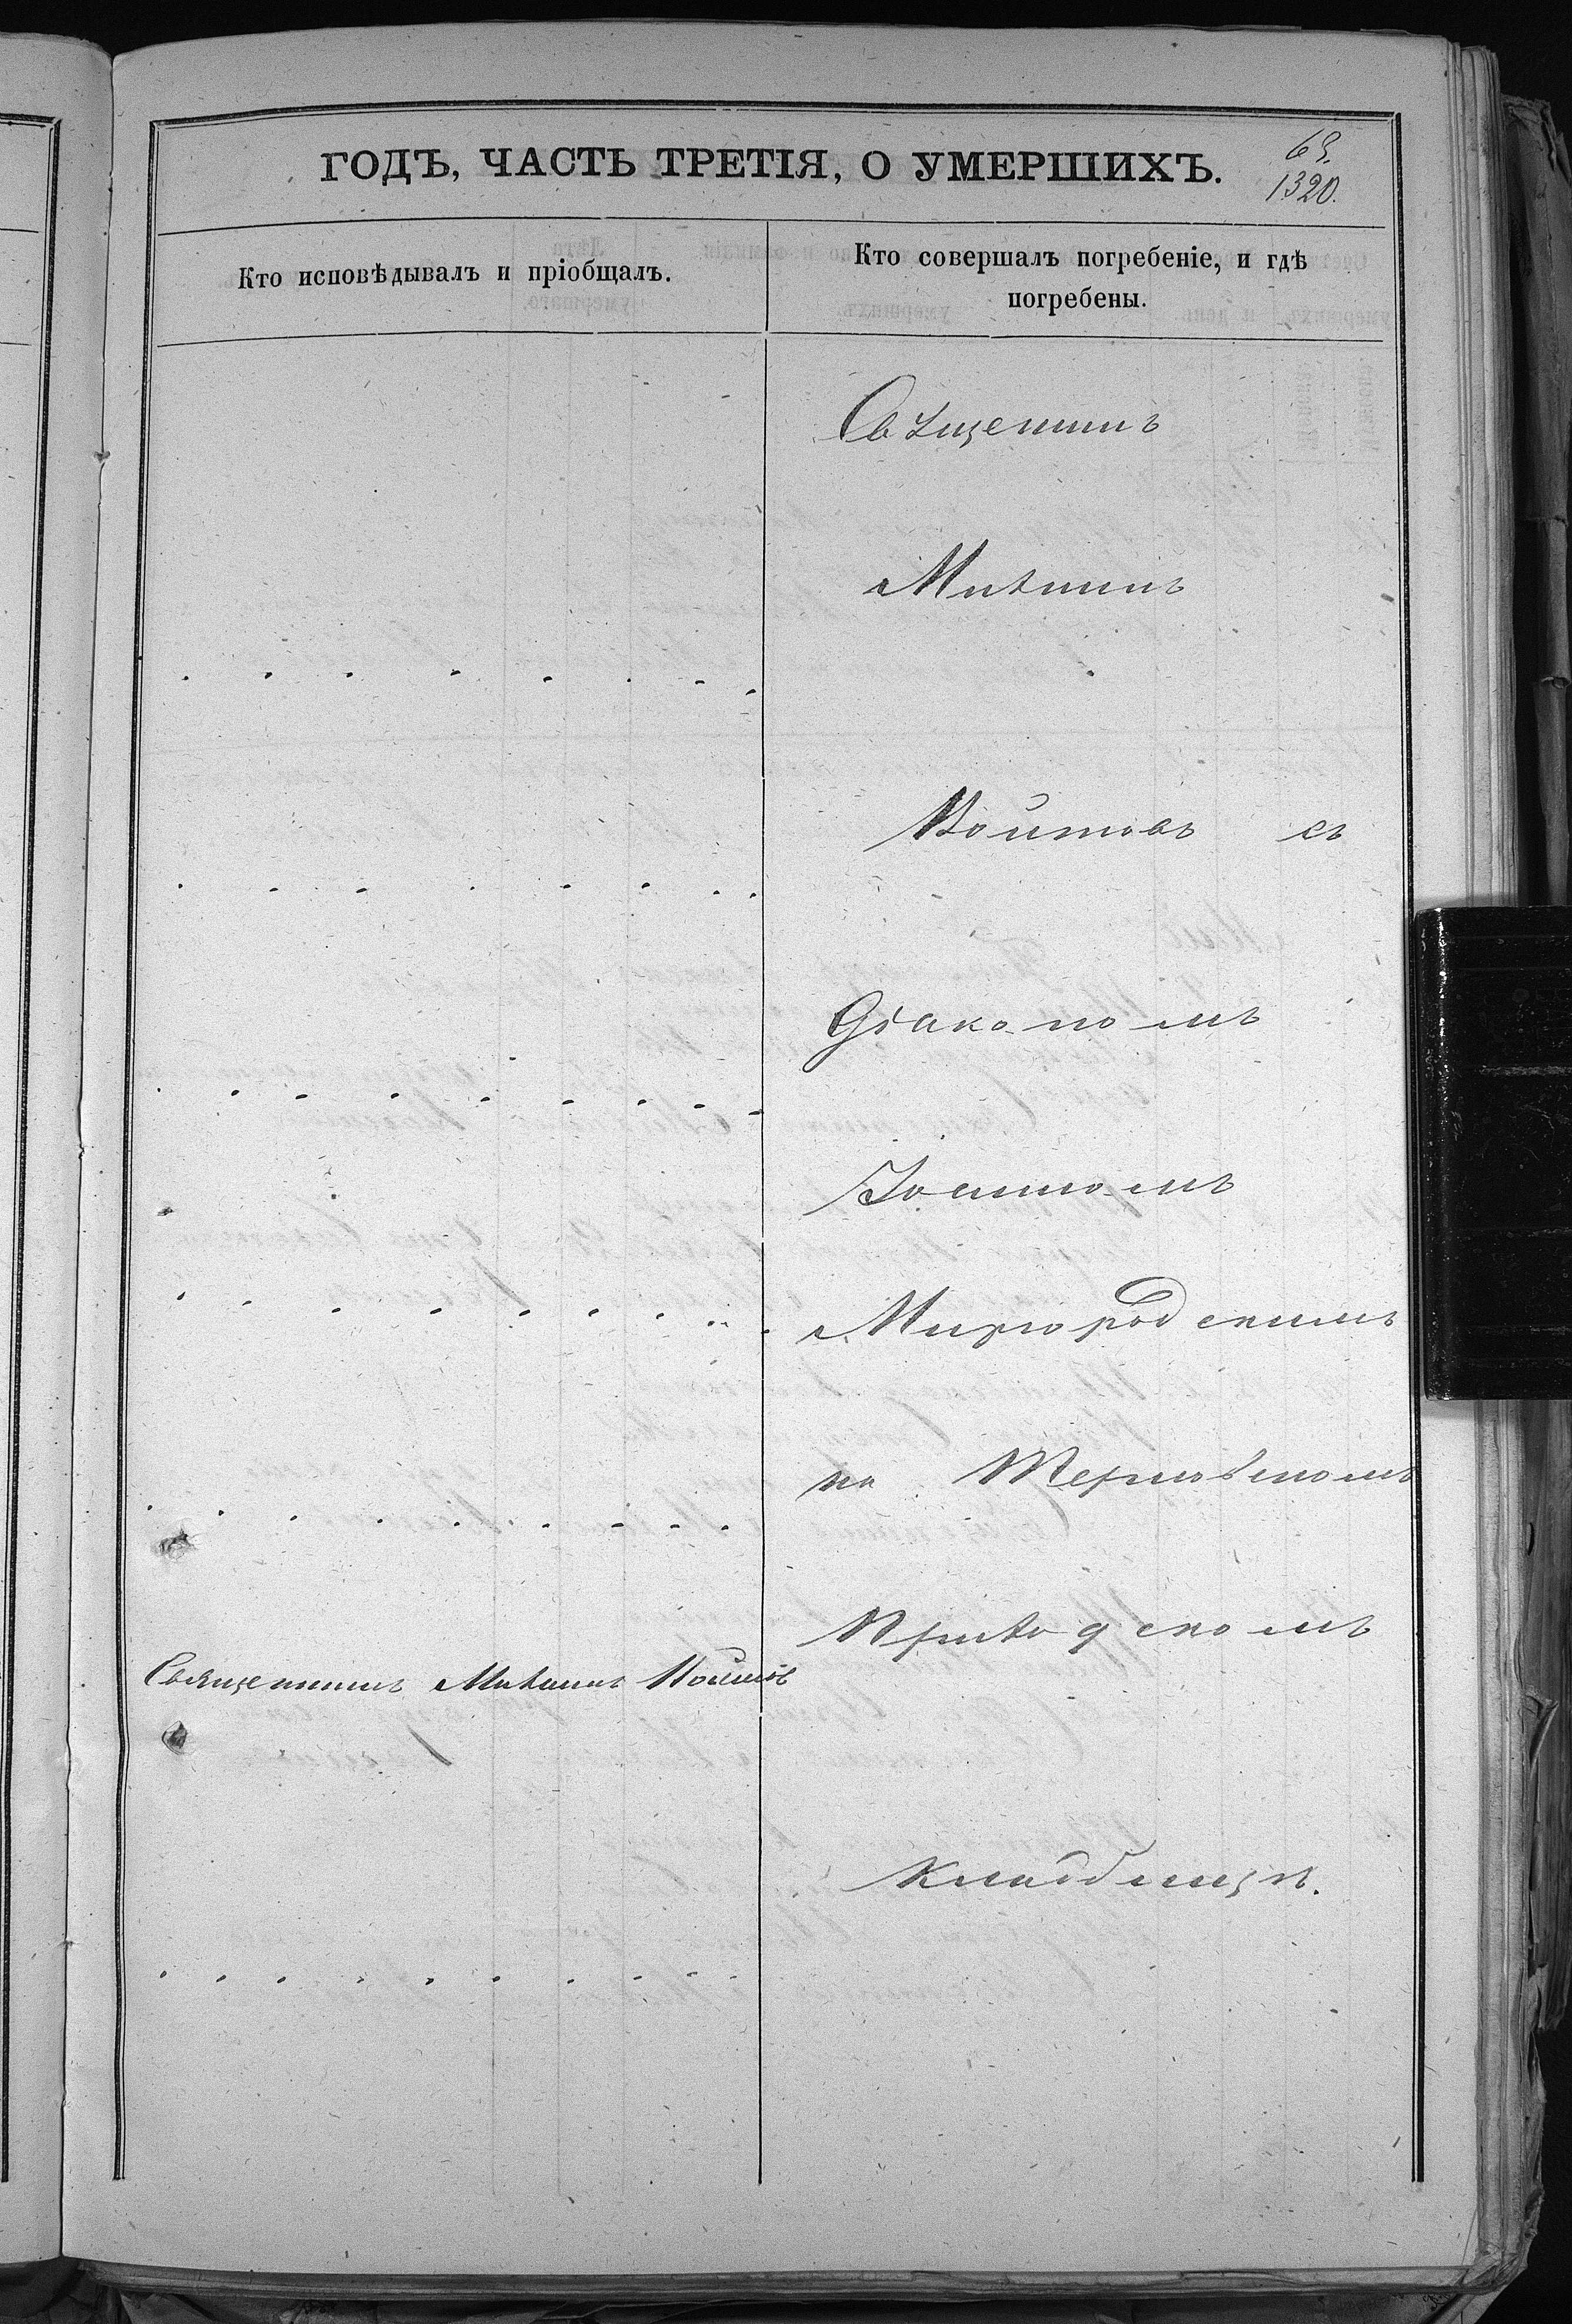 ГОДЪ, ЧАСТЬ ТРЕТІЯ, О УМЕРШИХЪ.
1320.
Кто исповѣдывалъ и пріобщалъ.
Кто совершалъ погребеніе, и гдѣ
погребены.
Священникъ
Михаилъ
Войтовъ съ
Діакономъ
Іоанномъ
Миргородскимъ
на
Приходскомъ
Священникъ Михаилъ Войтовъ
кладбищѣ.